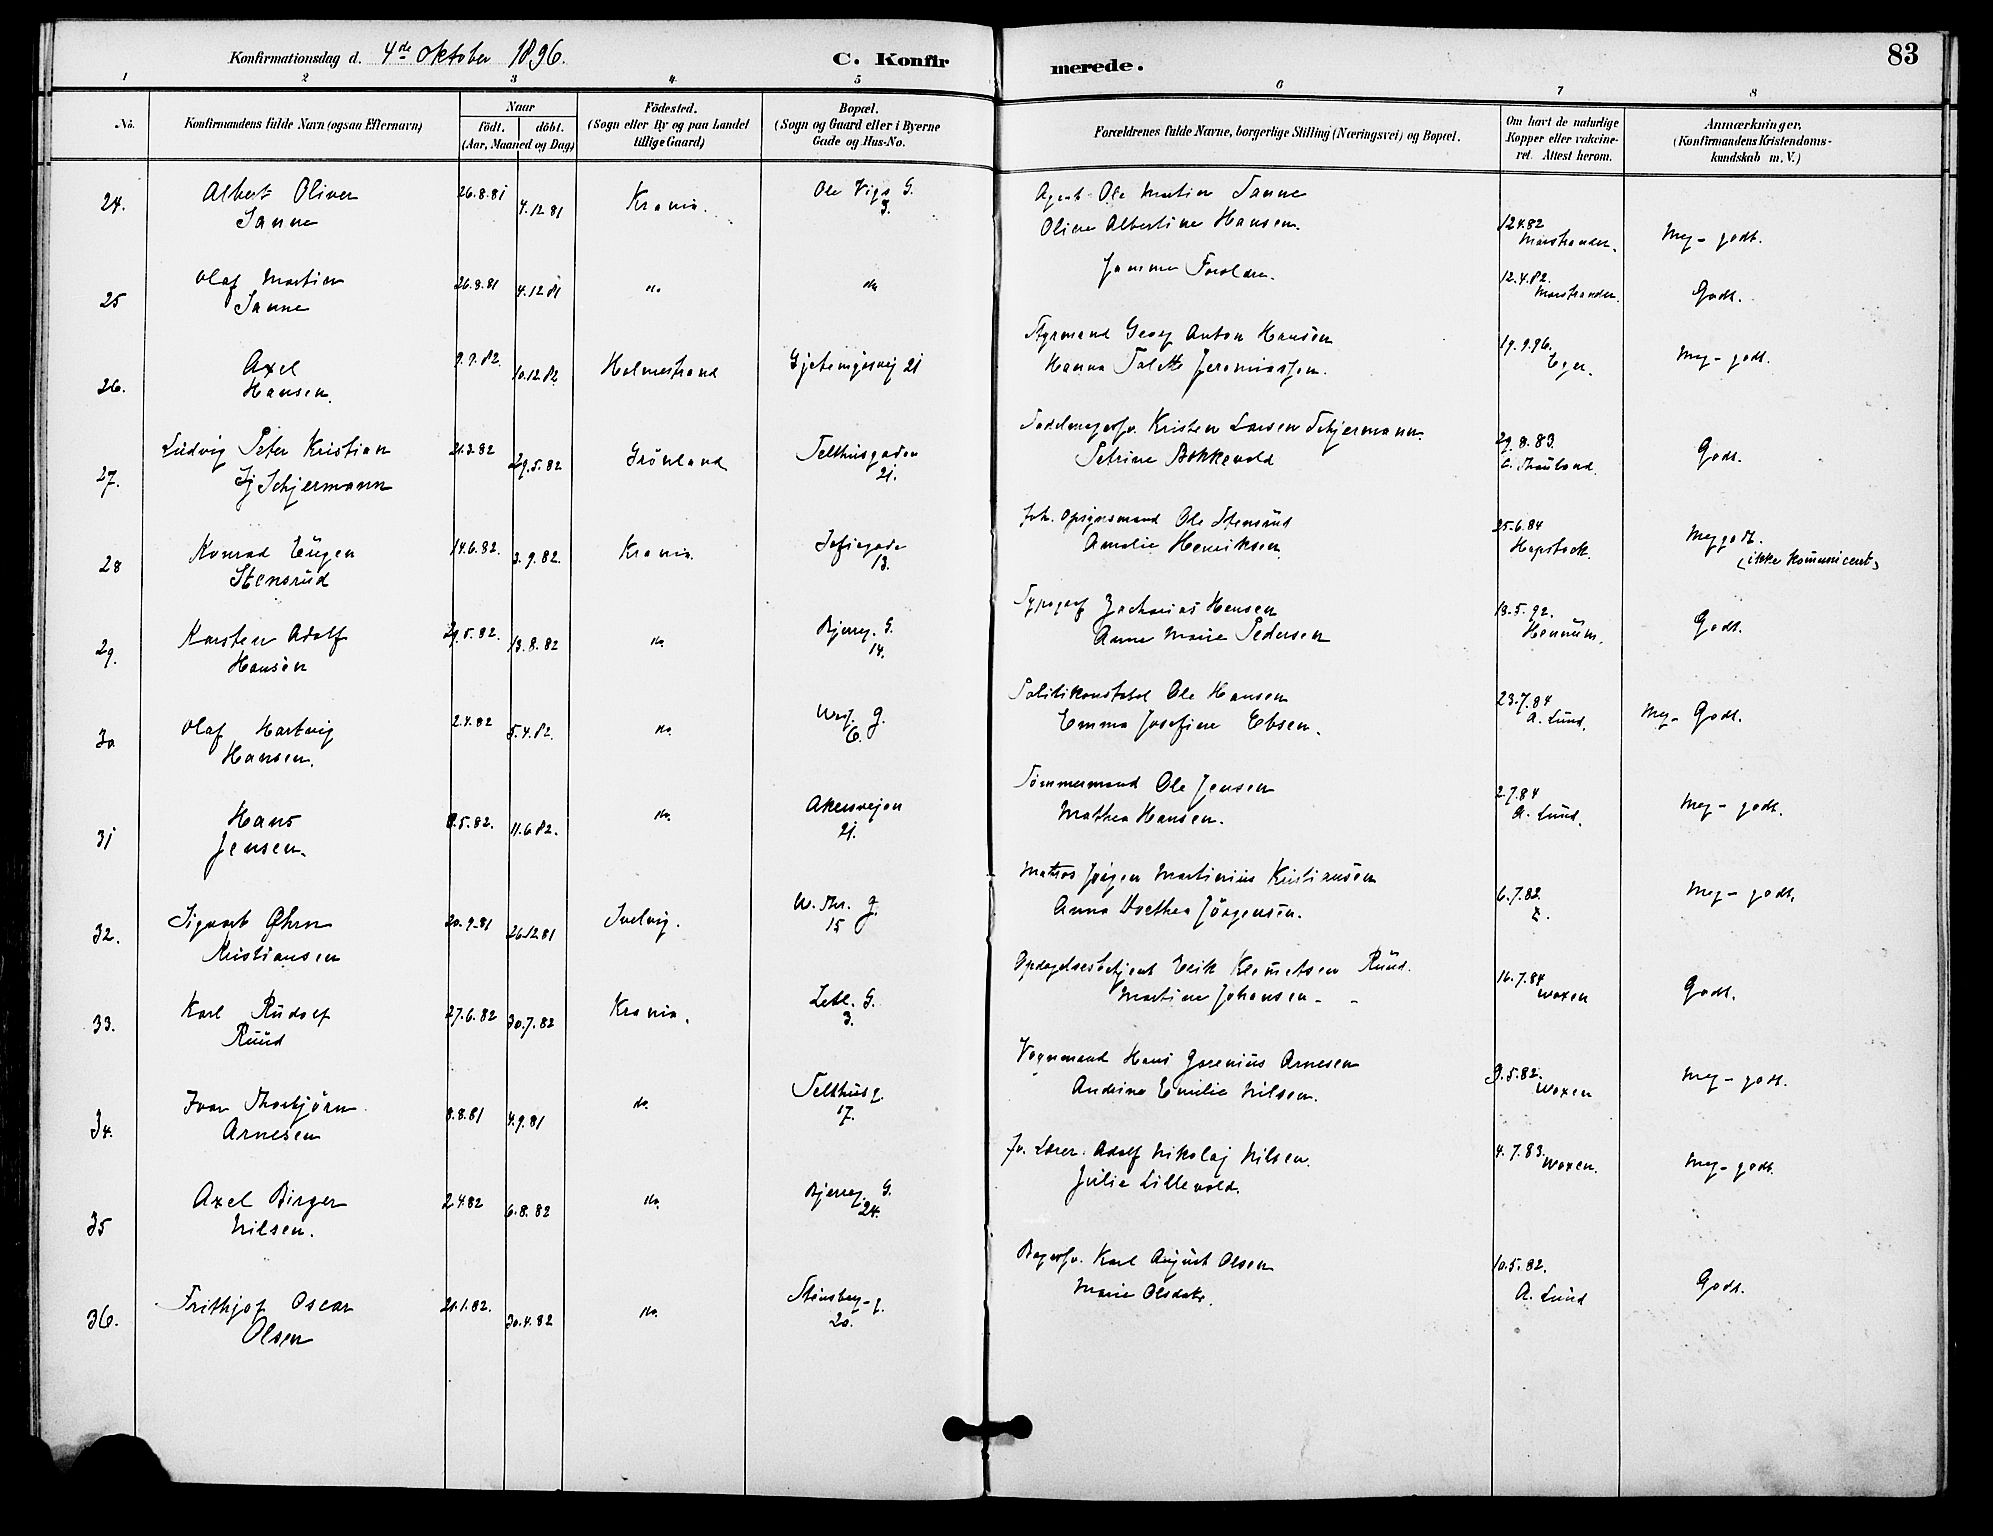 Konfirmationsdag d. 4de Oktober 1896.
C. Konfirmerede.
83
1 2 3 4 5 6 7 8
No.
Konfirmandens fulde Navn (ogsaa Efternavn)
Naar
födt. döbt.
(Aar, Maaned og Dag)
Födested.
(Sogn eller By og paa Landet
tillige Gaard)
Bopæl.
(Sogn og Gaard eller i Byerne
Gade og Hus-No.
Forældrenes fulde Navne, borgerlige Stilling (Næringsvei) og Bopæl.
Om havt de naturlige
Kopper eller vakcine-
ret. Attest herom.
Anmærkninger,
(Konfirmandens Kristendoms-
kundskab m. V.)
24. Albert Oliver 26.8.81 4.12 81 Krania. Ole Vigs G. Agent Ole Martin Sanne 12.4.82
Sanne 3. Oline Albertine Hansen. Marstrander. Meg- godt.
25 Olaf Martin 26.8.81 4.12 81 do do Samme Foreldre. 12.4.82.
Sanne Marstrander. Godt.
26. Axel 9.9.82. 10.12 82 Holmestrand Gjetemyrsvej 21 Styrmand Georg Anton Hansen 19.9.96.
Hansen. Hanna Talette Jeremiassen. Eger. Meg- godt.
27. Ludvig Peter Kristian 21.3.82 29.5.82 Grönland Telthusgaden Sadelmagersv. Kristen Larsen Schjermann. 29.8.83.
Schjermann 21. Petrine Bakkevold Godt.
28 Konrad Eugen 14.6.82. 3.9.82. Krania. Sofiegade Ole Stensrud 25.6.84
Stensrud 13. Amalie Henriksen. Hapstock. Meg godt.
(ikke Kommunicent)
29. Karsten Adolf 29.5.82. 13.8.82 do. Bjerreg. G. Typograf Zacharias Hansen 13.5.92.
Hansen 14. Anne Marie Pedersen Hennum. Godt.
30 Olaf Hartvig 2.4.82 5.4.82. do. G. Politikonstabel Ole Hansen 23.7.84
Hansen. 6. Emma Josefine Ebsen. A. Lund. Meg- Godt.
31 Hans 8.5.82. 11.6 82. do. Akersvejen Tömmermand Ole Jensen 2.7.84
Jensen. 21. Mathea Hansen. A. Lund. Meg- godt.
32. Sigvart Öhrn 20.9.81 26.12.81 Svelvig. W. Thr. G. Matros Jörgen Martinius Kristiansen 6.7.82.
Kristiansen 15 Anna Dorthea Jörgensen. Meg- godt.
33. Karl Rudolf 27.6.82 30.7.82 Krania. Zetl. G. Opdagelsesbetjent Erik Klemetsen Ruud. 16.7.84
Ruud 3. Martine Johansen - - Woxen Godt.
34. Ivar Thorbjörn 8.8.81 4.9.81 do. Telthusg. Vognmand Hans Grenius Arnesen 9.5.82.
Arnesen 17. Andrine Emilie Nilsen. Woxen Meg- godt.
35 Axel Birger 2.4.82 6.8.82 do. Bjerreg. G. Adolf Nikolaj Nilsen. 4.7.83. Woxen.
Nilsen. 24. Julie Lillevold. Meg- godt.
36. Frithjof Oscar 21.1.82. 30.4.82 do. Stensberg-g. Bagersv. Karl August Olsen 10.5.82.
Olsen 20. Marie Olsdatr. A. Lund Godt.